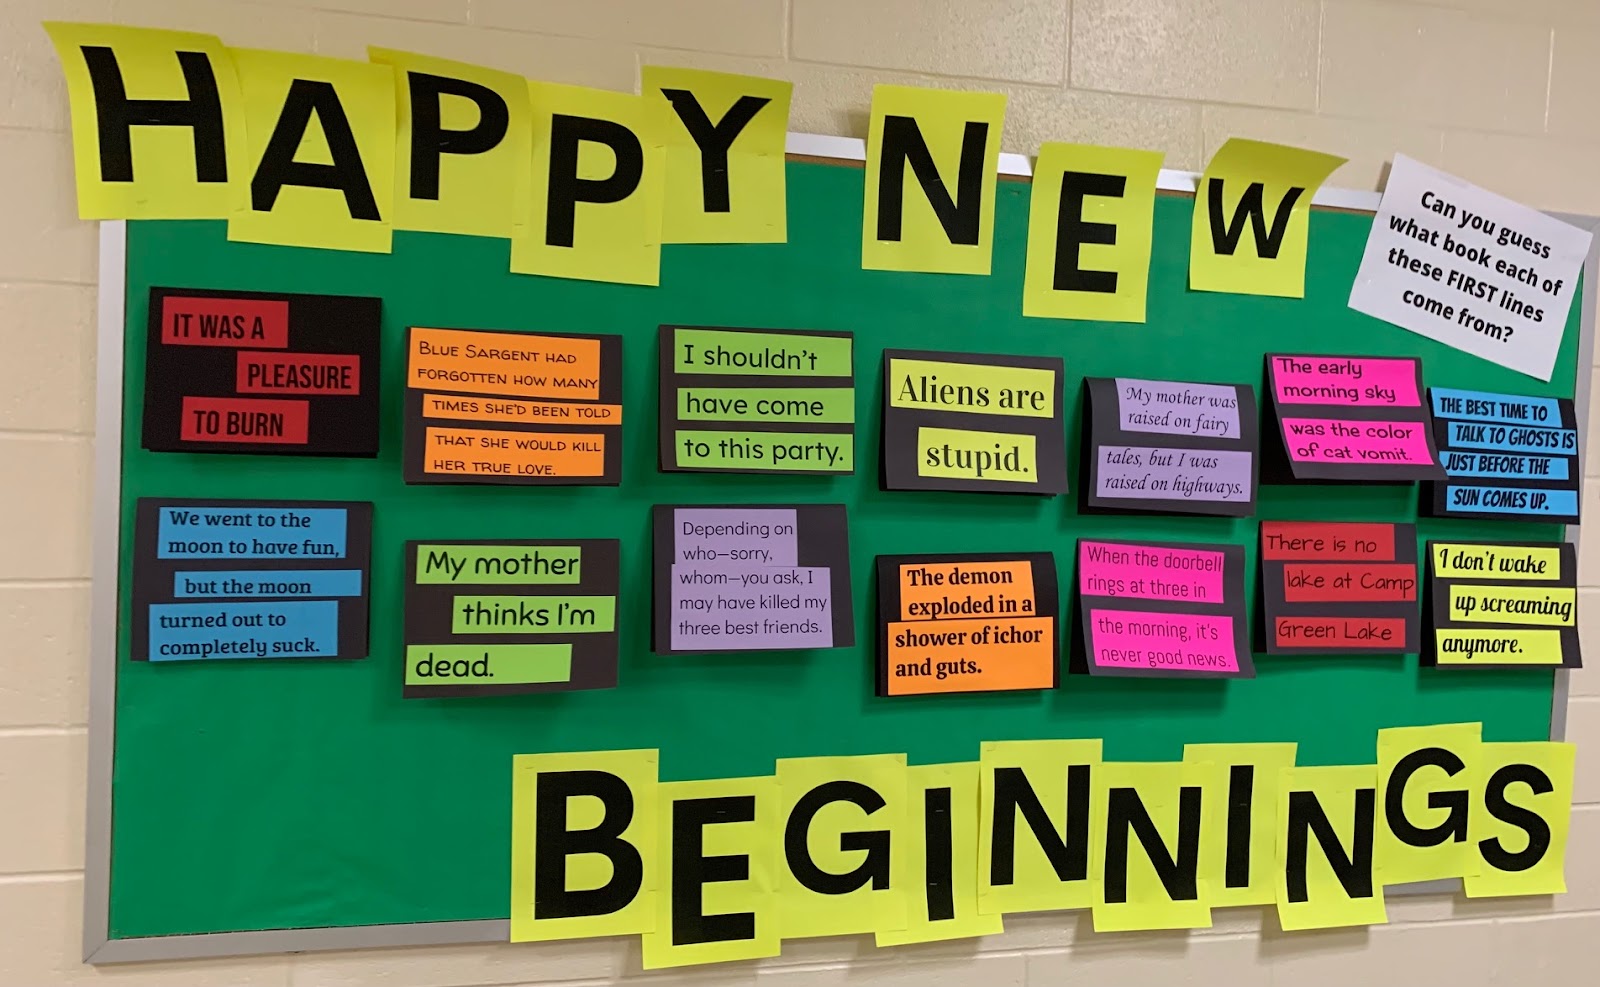 HAPPY NEW
Can you guess
what book each of
these FIRST lines
come from?
IT WAS A
PLEASURE
TO BURN
BLUE SARGENT HAD
FORGOTTEN HOW MANY
TIMES SHE'D BEEN TOLD
THAT SHE WOULD KILL
HER TRUE LOVE.
I shouldn't
have come
to this party.
Aliens are
stupid.
My mother was
raised on fairy
tales, but I was
raised on highways.
The early
morning sky
was the color
of cat vomit.
THE BEST TIME TO
TALK TO GHOSTS IS
JUST BEFORE THE
SUN COMES UP.
We went to the
moon to have fun,
but the moon
turned out to
completely suck.
My mother
thinks I'm
dead.
Depending on
who—sorry,
whom—you ask, I
may have killed my
three best friends.
The demon
exploded in a
shower of ichor
and guts.
When the doorbell
rings at three in
the morning, it's
never good news.
There is no
lake at Camp
Green Lake
I don't wake
up screaming
anymore.
BEGINNINGS